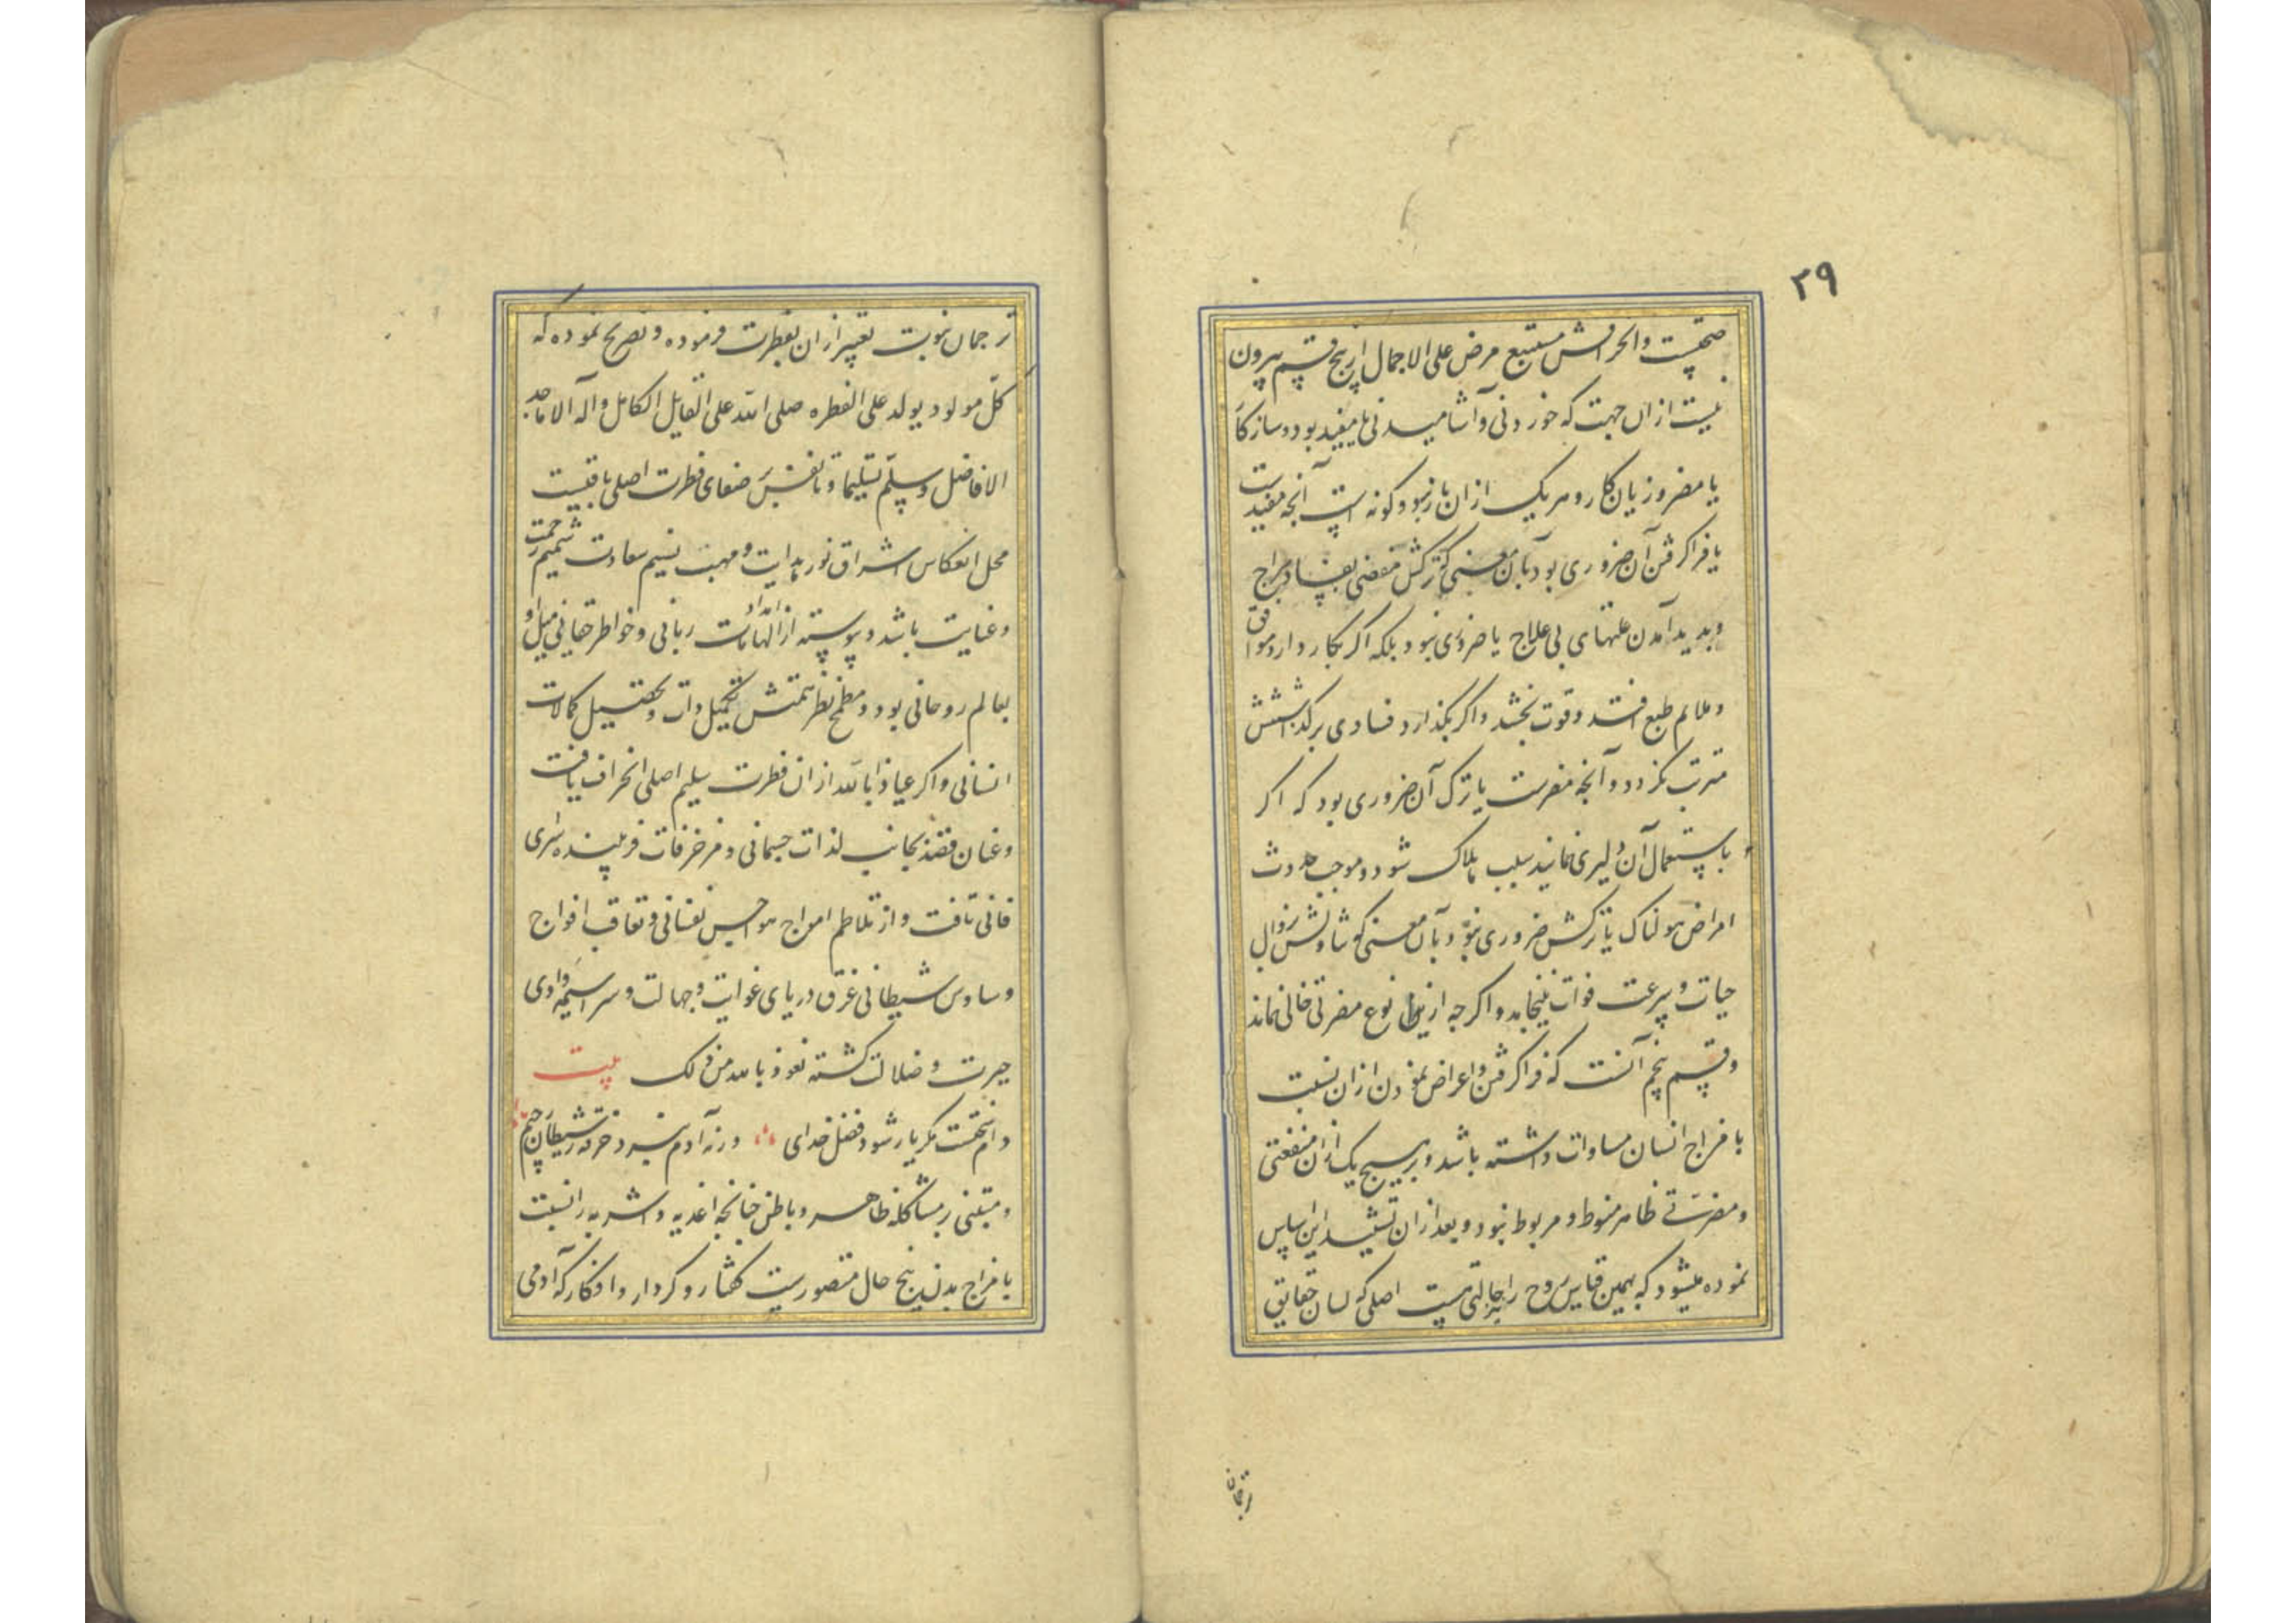 ۲۹
صحتست وانحرافش مستتبع مرض علی الاجمال از پنج قسم بیرون
نیست ازان جهت که خوردنی وآشامیدنی یا مفید بود وسازکار
یا مضر وزیان کار وهریک ازان باز بدو کونه است آنچه مفیدست
یا فراکرفتن آن ضروری بود بآن معنی که ترکش مفضی بفساد مزاج
وپدید آمدن علتهای بی علاج یا ضروری نبود بلکه اکر بکار دارد موافق
وملایم طبع افتد وقوت بخشد واکر بکذارد فسادی برکذاشتنش
مترتب نکردد وآنچه مضرست یا ترک آن ضروری بود که اکر
باستعمال آن دلیری نمایند سبب هلاک شود وموجب حدوث
امراض هولناک یا ترکش ضروری نبود بآن معنی که تناولش بزوال
حیات وسرعت فوات نینجامد واکرچه از نوع مضرتی خالی نماند
وقسم پنجم آنست که فراکرفتن واعراض نمودن ازان نسبت
با مزاج انسان مساوات داشته باشد وبر هیچ یک ازان منفعتی
ومضرتی ظاهر منوط ومربوط نبود وبعد ازان تشیید این اساس
نموده میشود که بهمین قیاس روح را حالتی هست اصلی که لسان حقایق
ترجمان
ترجمان نبوت تعبیر ازان بفطرت فرموده وتصریح نموده که
کل مولود یولد علی الفطره صلی الله علی القایل الکامل وآله الاماجد
الافاضل وسلم تسلیما وتا نفس بر صفای فطرت اصلی باقیست
محل انعکاس اشراق نور هدایت ومهب نسیم سعادت شمیم رحمت
وعنایت باشد وپیوسته از الهامات ربانی وخواطر حقانی میل او
بعالم روحانی بود ومطمح نظر همتش تکمیل ذات وتحصیل کمالات
انسانی واکر عیاذا بالله ازان فطرت سلیم اصلی انحراف یافت
وعنان قصد بجانب لذات جسمانی ومزخرفات فریبنده سرای
فانی تافت واز تلاطم امواج هواجس نفسانی وتعاقب افواج
وساوس شیطانی غرق دریای غوایت وجهالت وسراسیمه وادی
حیرت وضلالت کشته نعوذ بالله من ذلک بیت
دام سختست مکر یار شود فضل خدای ورنه آدم نبرد صرفه ز شیطان رجیم
ومبتنی بر مشاکله ظاهر وباطن چنانچه اغذیه واشربه را نسبت
با مزاج بدن پنج حال متصورست کفتار وکردار وافکار که آدمی